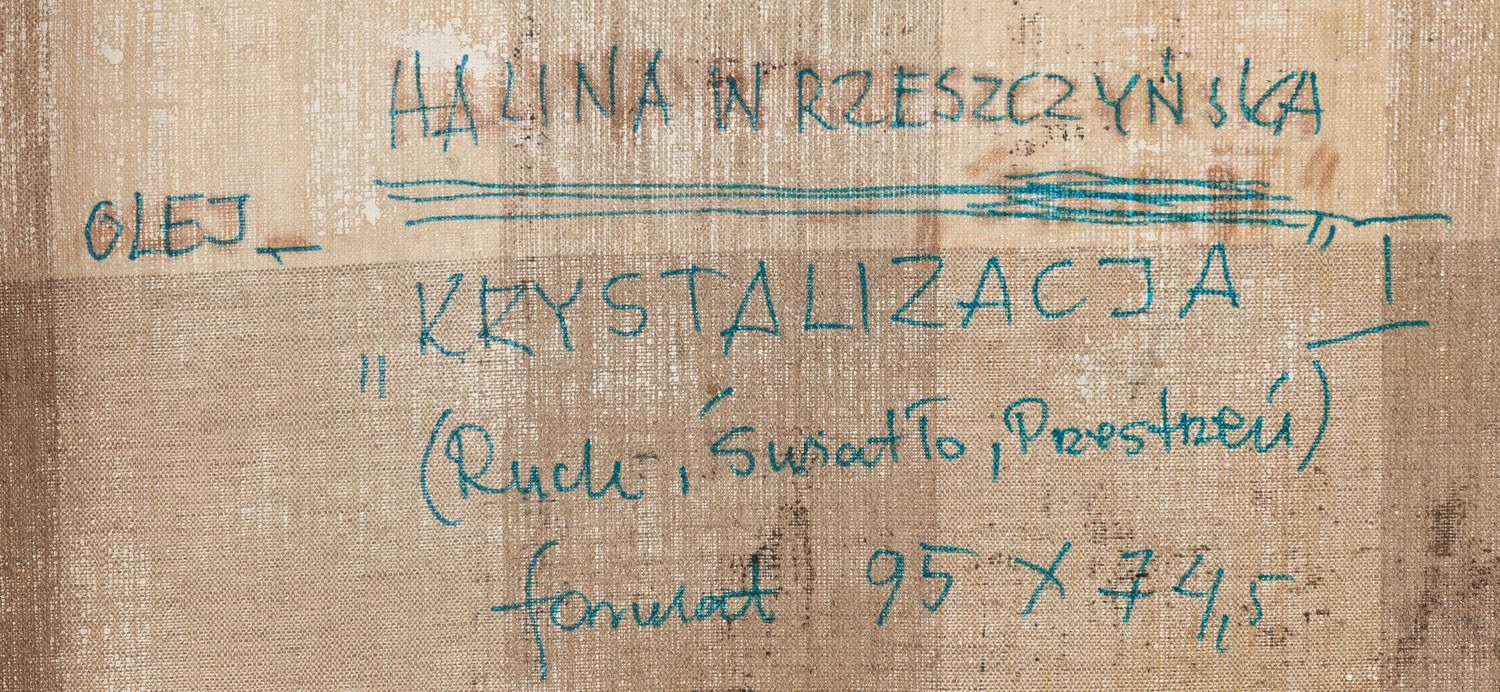 HALINA WRZESZCZYŃSKA
OLEJ_
"KRYSTALIZACJA" I
(Ruch, Światło, Przestrzeń)
format 95 X 74,5